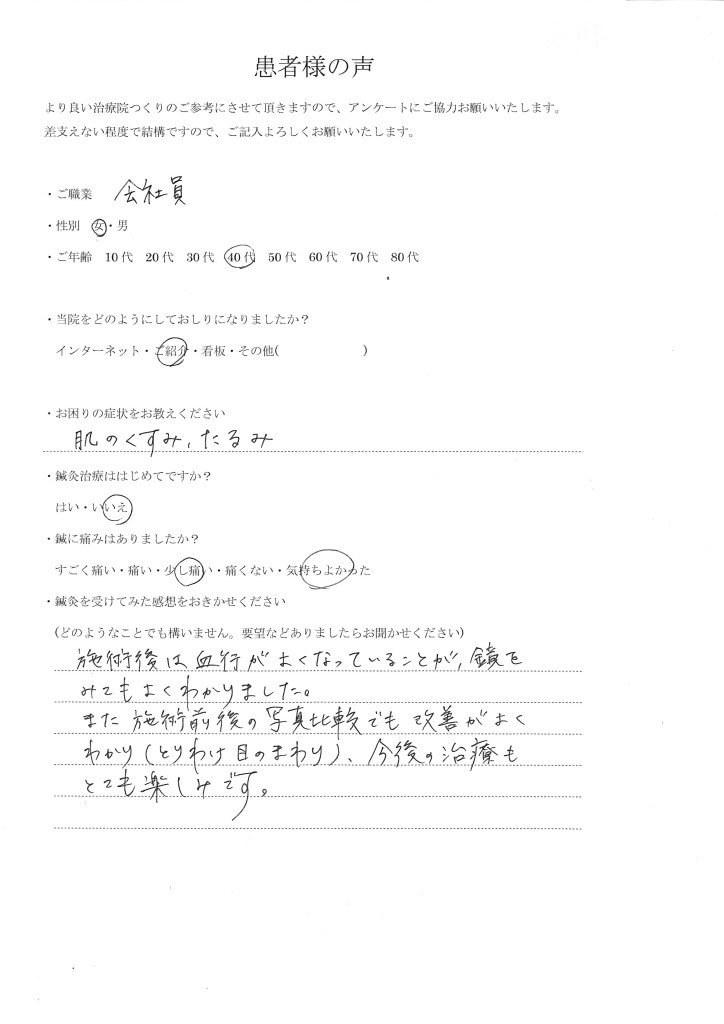 患者様の声
より良い治療院つくりのご参考にさせて頂きますので、アンケートにご協力お願いいたします。
差支えない程度で結構ですので、ご記入よろしくお願いいたします。
・ご職業 会社員
・性別 女・男
・ご年齢 10代 20代 30代 40代 50代 60代 70代 80代
・当院をどのようにしておしりになりましたか？
インターネット・ご紹介・看板・その他( )
・お困りの症状をお教えください
肌のくすみ、たるみ
・鍼灸治療ははじめてですか？
はい・いいえ
・鍼に痛みはありましたか？
すごく痛い・痛い・少し痛い・痛くない・気持ちよかった
・鍼灸を受けてみた感想をおきかせください
(どのようなことでも構いません。要望などありましたらお聞かせください)
施術後は血行がよくなっていることが、鏡を
みてもよくわかりました。
また施術前後の写真比較でも改善がよく
わかり(とりわけ目のまわり)、今後の治療も
とても楽しみです。